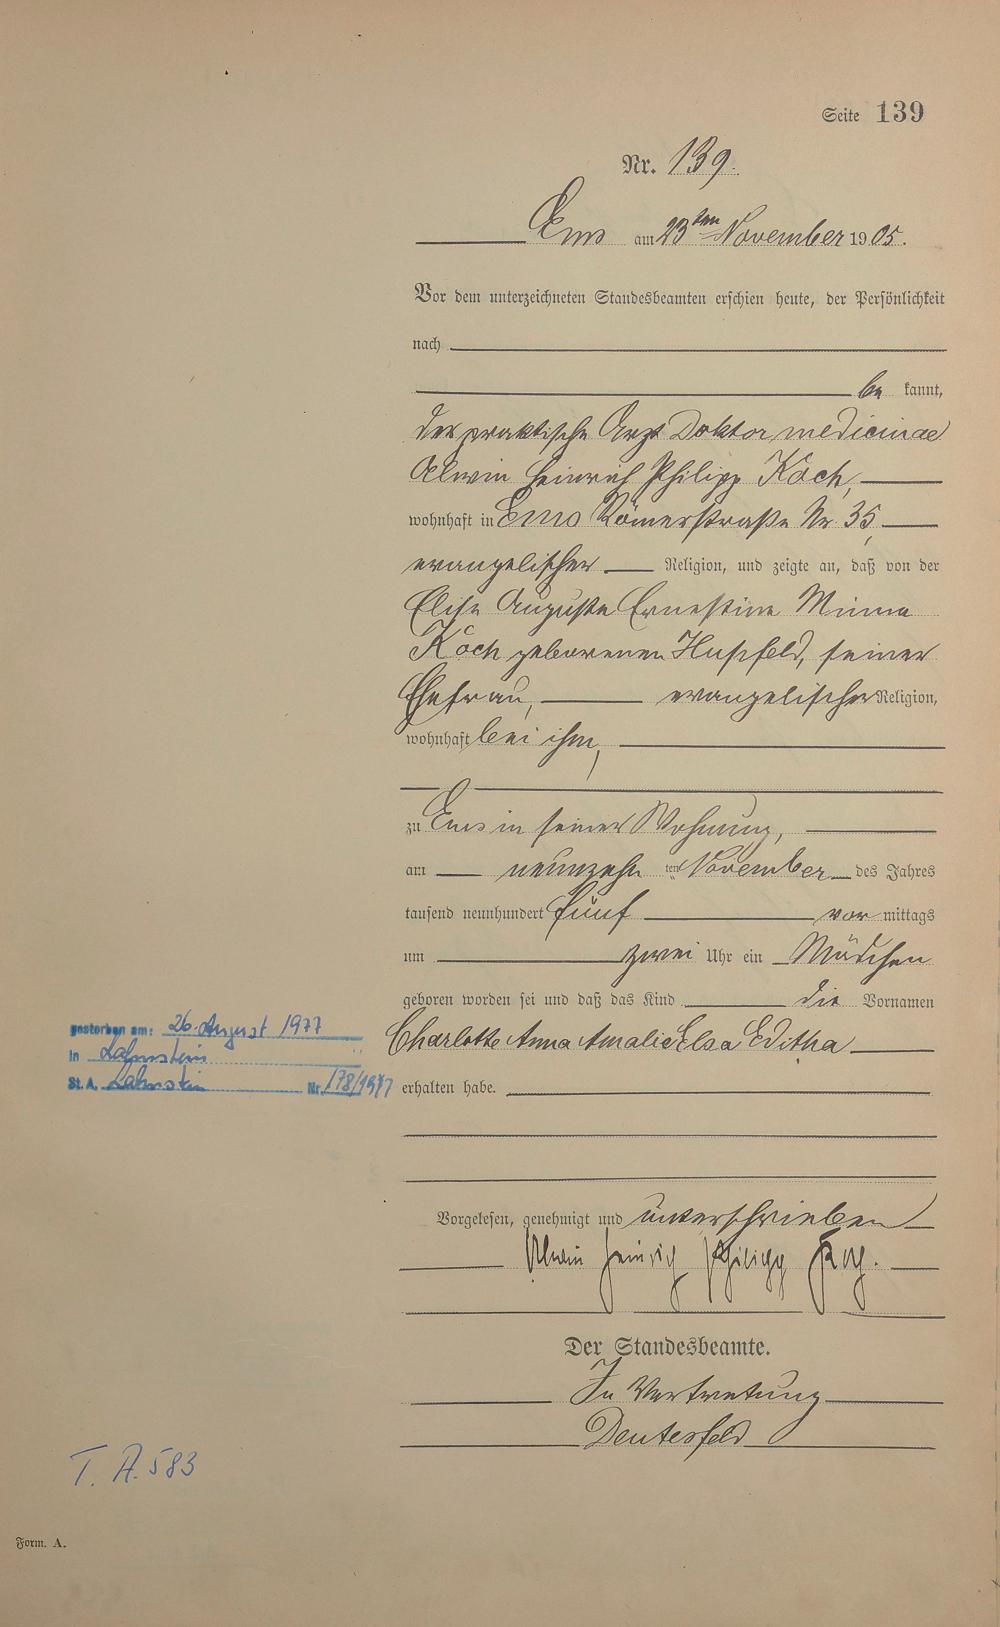 Seite 139
Nr. 139.
Ems am 23ten November 1905.
Vor dem unterzeichneten Standesbeamten erschien heute, der Persönlichkeit
nach
be kannt,
der praktische Arzt Doktor medicinae
Alwin Heinrich Philipp Koch,
wohnhaft in Ems Römerstraße Nr. 35,
evangelischer Religion, und zeigte an, daß von der
Elise Auguste Ernestine Minna
Koch geborenen Hupfeld, seiner
Ehefrau, evangelischer Religion,
wohnhaft bei ihm,
zu Ems in seiner Wohnung,
am neunzehn ten November des Jahres
tausend neunhundert fünf vor mittags
um zwei Uhr ein Mädchen
geboren worden sei und daß das Kind die Vornamen
Charlotte Anna Amalie Elsa Editha
erhalten habe.
gestorben am: 26. August 1977
in Lahnstein
St. A. Lahnstein Nr. 178/1977
Vorgelesen, genehmigt und unterschrieben
Alwin Heinrich Philipp Koch.
Der Standesbeamte.
In Vertretung
Deutesfeld
T. A. 583
Form. A.